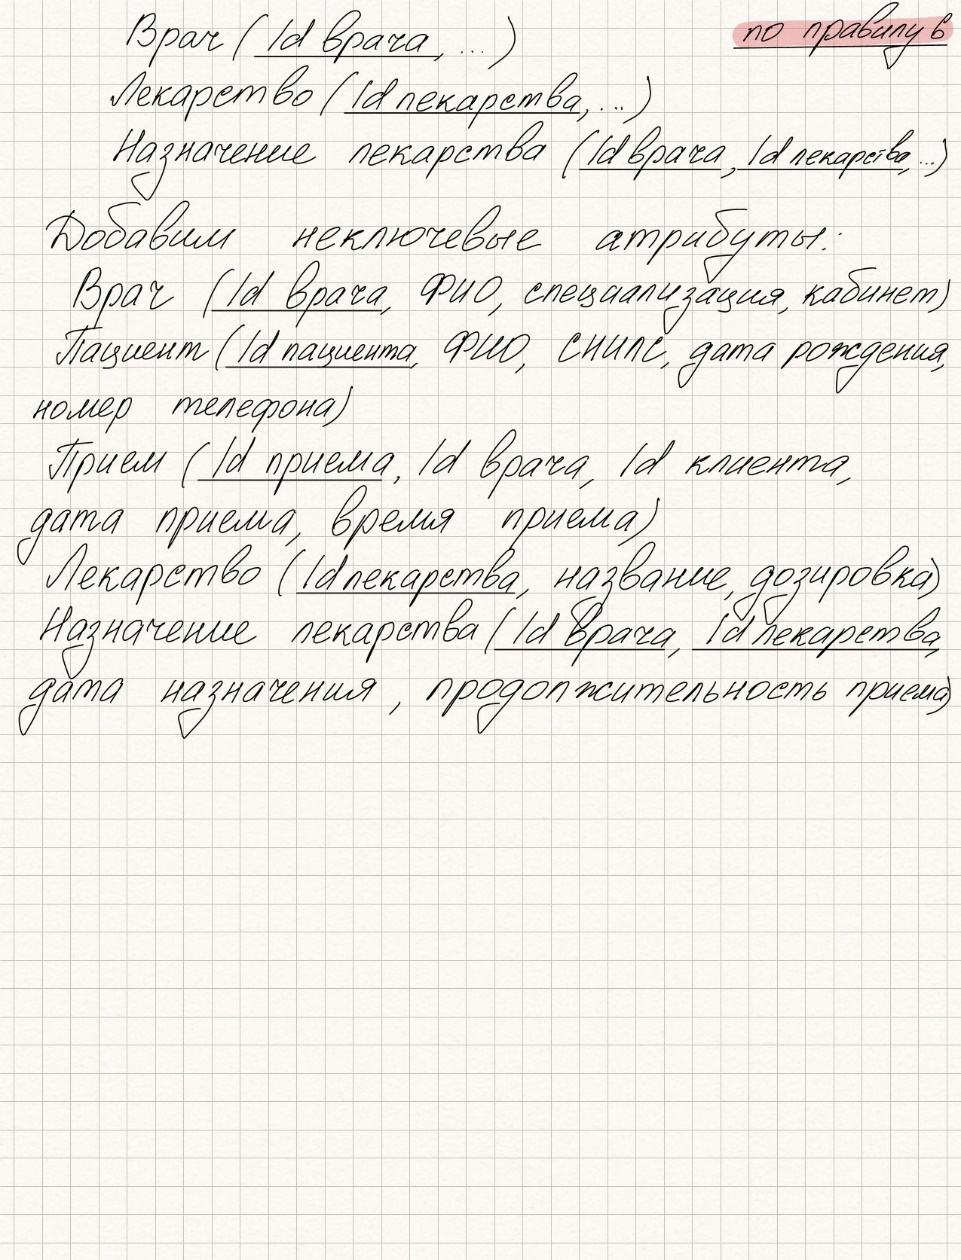 Врач (Id врача, ...) по правилу 6
Лекарство (Id лекарства, ...)
Назначение лекарства (Id врача, Id лекарства, ...)
Добавим неключевые атрибуты:
Врач (Id врача, ФИО, специализация, кабинет)
Пациент (Id пациента, ФИО, СНИЛС, дата рождения,
номер телефона)
Прием (Id приема, Id врача, Id клиента,
дата приема, время приема)
Лекарство (Id лекарства, название, дозировка)
Назначение лекарства (Id врача, Id лекарства,
дата назначения, продолжительность приема)